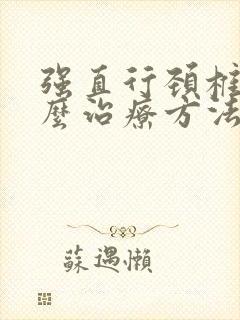 强直行颈椎
麼治療方法
蘇遇懶